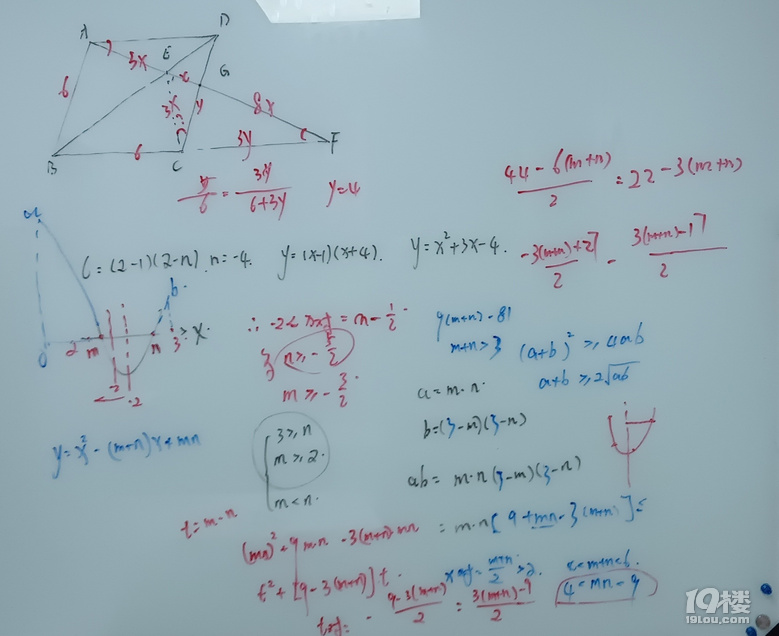 A D
E
3x x G
6 3x y 8x
B 6 C 3y F
y/6 = 3y/(6+3y) y=4
(44-6(m+n))/2 = 22-3(m+n)
6=(2-1)(2-n). n=-4. y=(x-1)(x+4). y=x²+3x-4.
(-3(m+n)+27)/2 - (3(m+n)-17)/2
b
0 2 m n 3 X
-2
m+n>3 (a+b)²≥4ab
a+b≥2√ab
n≥-5/2
m≥-3/2
a=m·n
b=(3-m)(3-n)
ab= m·n(3-m)(3-n)
y=x²-(m+n)x+mn
3≥n
m≥2
m<n
t=m·n
(mn)²+9mn-3(m+n)mn = m·n[9+mn-3(m+n)]
t²+[9-3(m+n)]t
(m+n)/2 >2. <m+n<6.
4<mn<9
t = -(9-3(m+n))/2 = (3(m+n)-9)/2
19楼
19lou.com